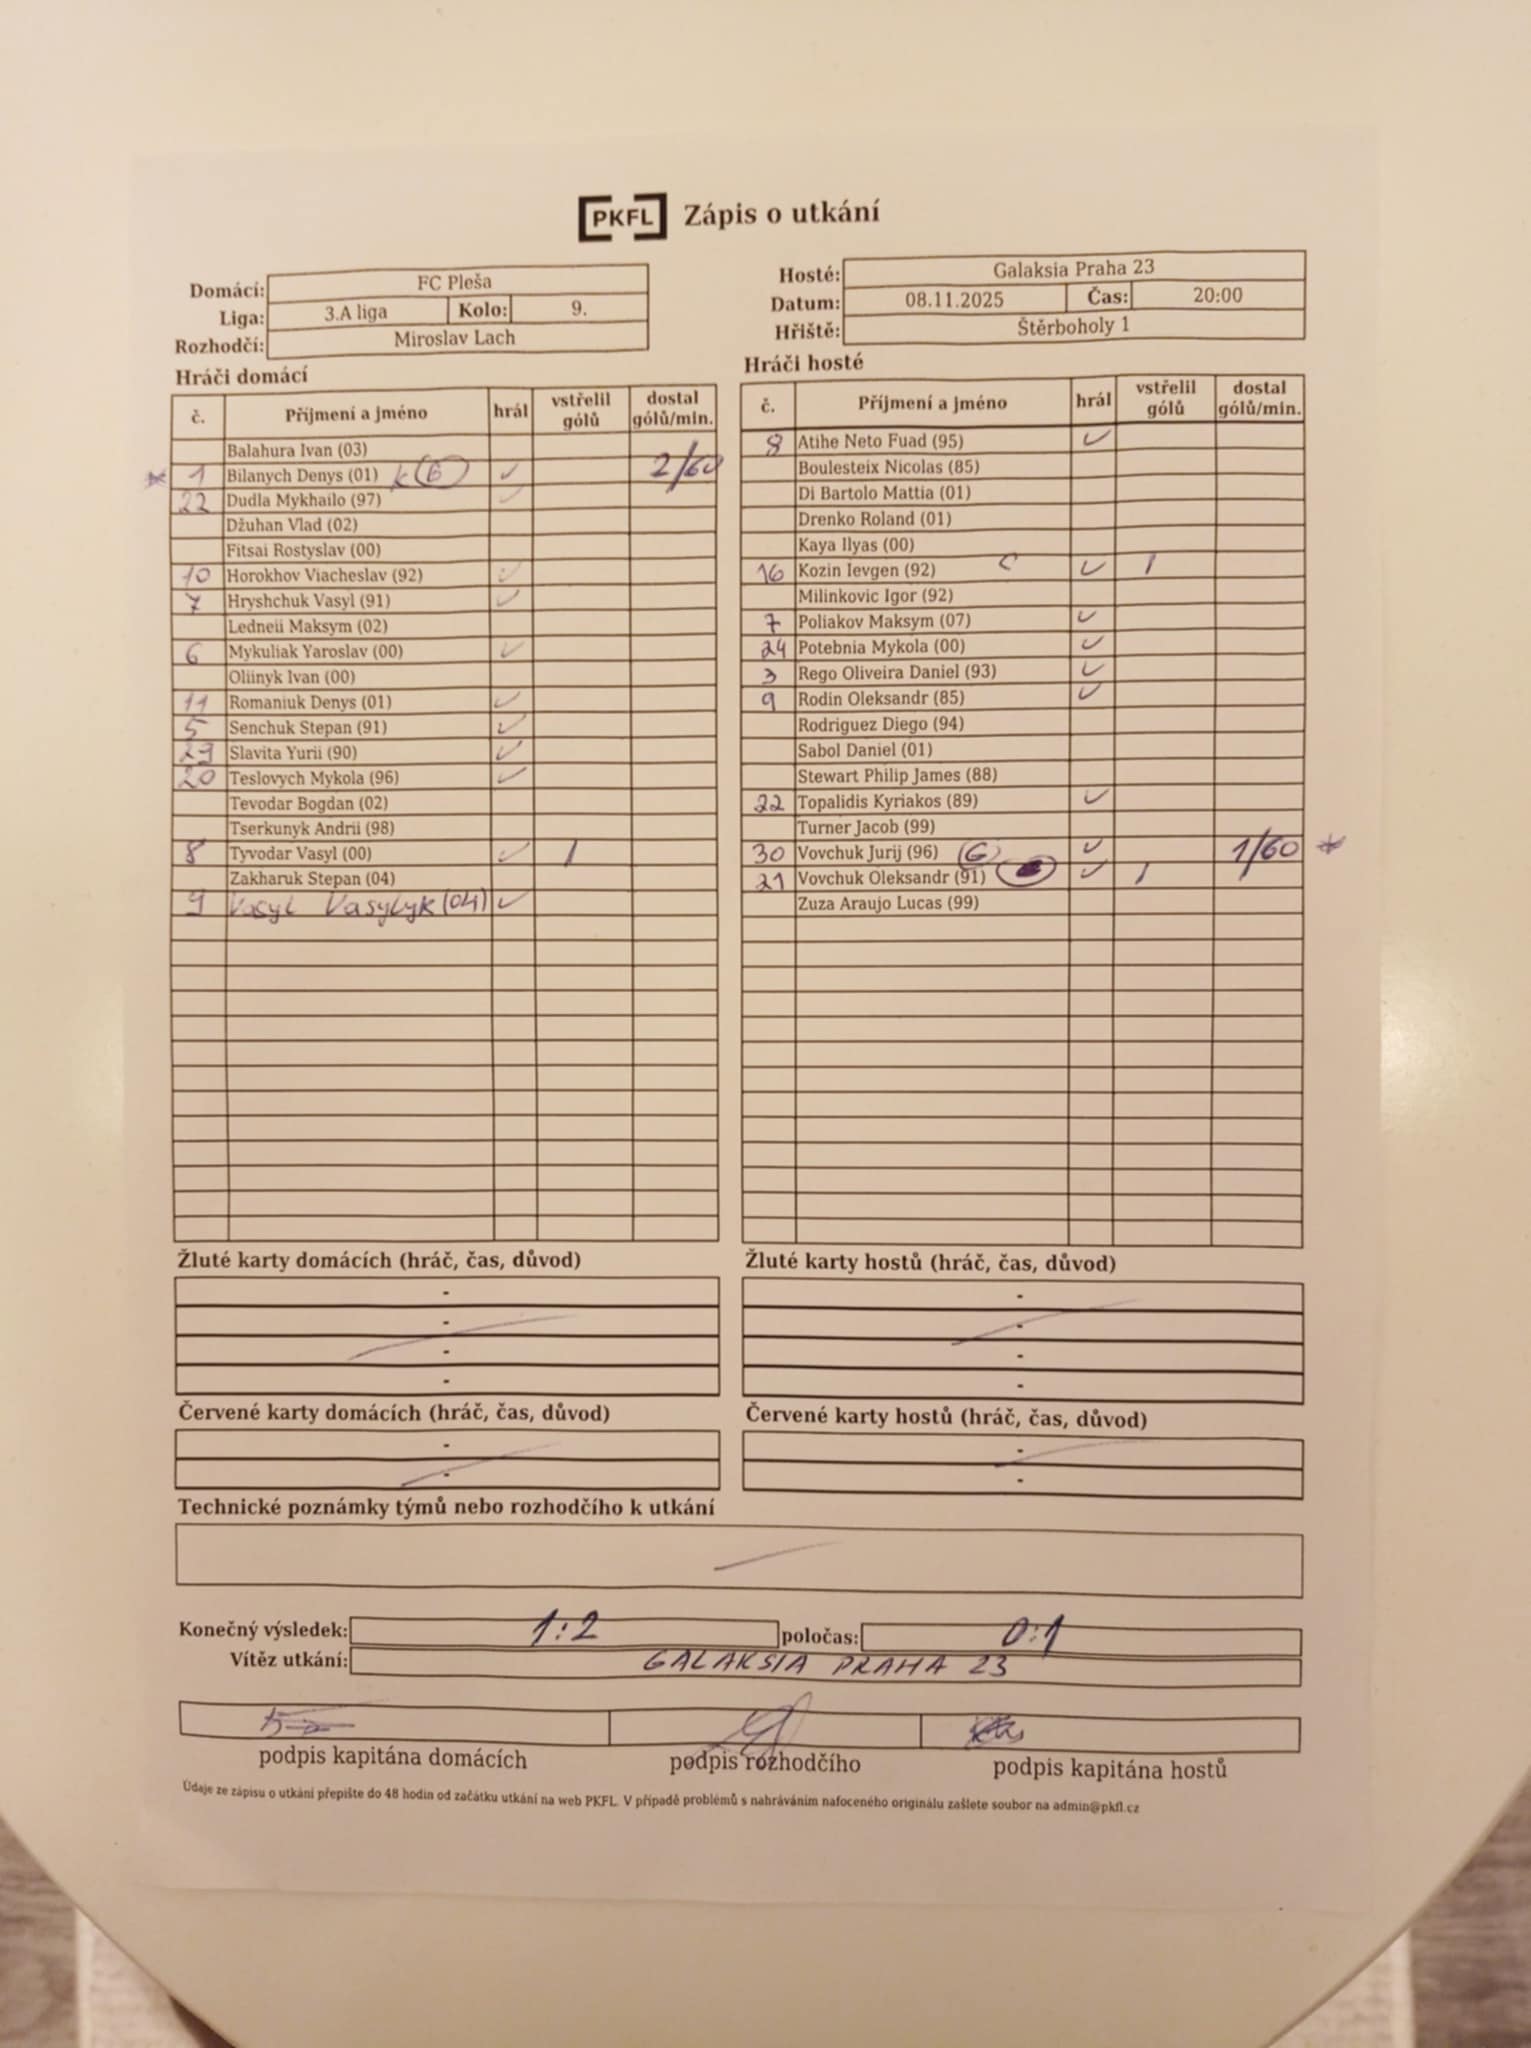 PKFL Zápis o utkání
Domácí: FC Pleša
Liga: 3.A liga Kolo: 9.
Rozhodčí: Miroslav Lach
Hosté: Galaksia Praha 23
Datum: 08.11.2025 Čas: 20:00
Hřiště: Štěrboholy 1
Hráči domácí
č. Příjmení a jméno hrál vstřelil gólů dostal gólů/min.
Balahura Ivan (03)
* 1 Bilanych Denys (01) K (G) ✓ 2/60
22 Dudla Mykhailo (97) ✓
Džuhan Vlad (02)
Fitsai Rostyslav (00)
10 Horokhov Viacheslav (92) ✓
7 Hryshchuk Vasyl (91) ✓
Ledneii Maksym (02)
6 Mykuliak Yaroslav (00) ✓
Oliinyk Ivan (00)
11 Romaniuk Denys (01) ✓
5 Senchuk Stepan (91) ✓
Slavita Yurii (90) ✓
20 Teslovych Mykola (96) ✓
Tevodar Bogdan (02)
Tserkunyk Andrii (98)
8 Tyvodar Vasyl (00) ✓ 1
Zakharuk Stepan (04)
9 Vasyl Vasylyk (04) ✓
Hráči hosté
č. Příjmení a jméno hrál vstřelil gólů dostal gólů/min.
8 Atihe Neto Fuad (95) ✓
Boulesteix Nicolas (85)
Di Bartolo Mattia (01)
Drenko Roland (01)
Kaya Ilyas (00)
16 Kozin Ievgen (92) C ✓ 1
Milinkovic Igor (92)
7 Poliakov Maksym (07) ✓
24 Potebnia Mykola (00) ✓
3 Rego Oliveira Daniel (93) ✓
9 Rodin Oleksandr (85) ✓
Rodriguez Diego (94)
Sabol Daniel (01)
Stewart Philip James (88)
22 Topalidis Kyriakos (89) ✓
Turner Jacob (99)
30 Vovchuk Jurij (96) (G) ✓ 1/60 *
21 Vovchuk Oleksandr (91) ✓ 1
Zuza Araujo Lucas (99)
Žluté karty domácích (hráč, čas, důvod)
-
-
-
-
Žluté karty hostů (hráč, čas, důvod)
-
-
-
-
Červené karty domácích (hráč, čas, důvod)
-
-
Červené karty hostů (hráč, čas, důvod)
-
-
Technické poznámky týmů nebo rozhodčího k utkání
Konečný výsledek: 1:2 poločas: 0:1
Vítěz utkání: GALAKSIA PRAHA 23
podpis kapitána domácích podpis rozhodčího podpis kapitána hostů
Údaje ze zápisu o utkání přepište do 48 hodin od začátku utkání na web PKFL. V případě problémů s nahráváním nafoceného originálu zašlete soubor na admin@pkfl.cz